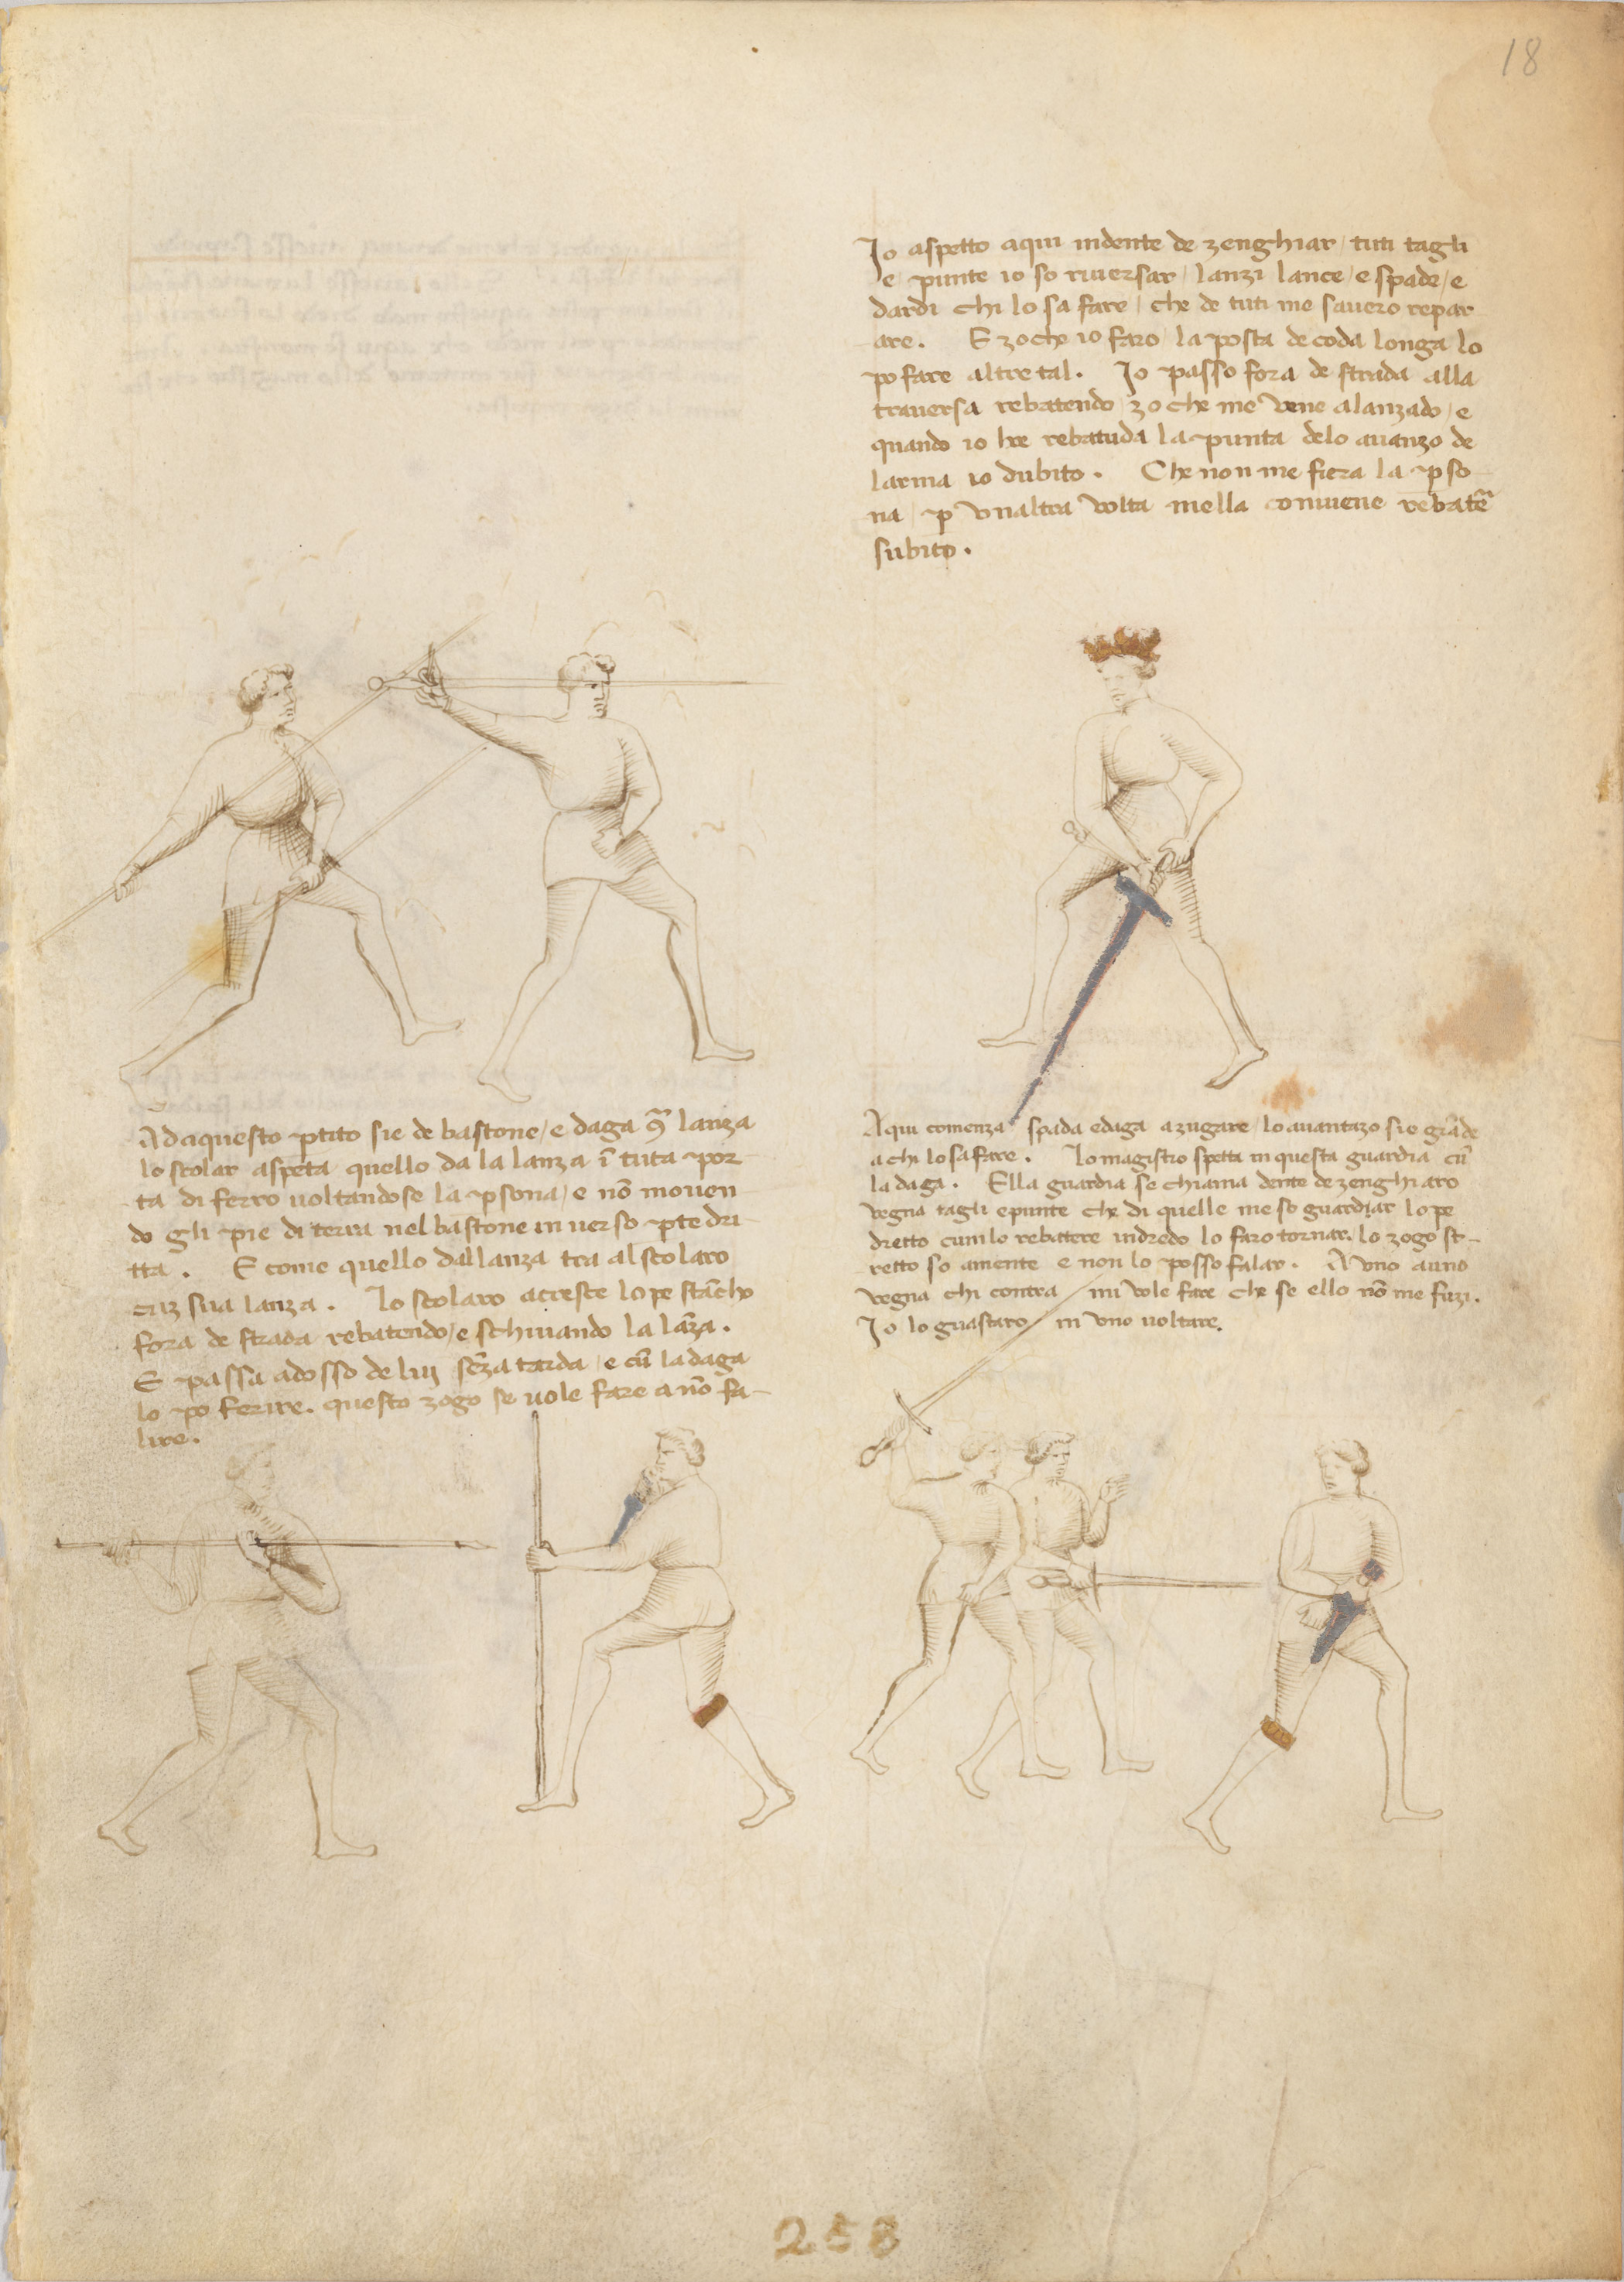 18
Io aspetto aqui in dente de zenghiar / tuti tagli
e punte io so riversar / lanzi lance / e spade / e
dardi chi lo sa fare / che de tuti me savero repar
are . E zoche io faro / la posta de coda longa lo
po fare altretal . Io passo fora de strada alla
traversa rebatendo / zo che me vene alanzado / e
quando io he rebatuda la punta delo avanzo de
larma io dubito . Che non me fiera la pso
na / p vnaltra volta mella conviene rebatẽ
subito .
Ad aquesto ptito sie de bastone / e daga 9ᷓ lanza
lo scolar aspeta quello da la lanza ĩ tuta por
ta di ferro voltandose la psona / e nõ moven
do gli pie di terra nel bastone inverso pte dri
tta . E come quello dallanza tra al scolaro
cuz sua lanza . Lo scolaro acresce lo pe stãcho
fora de strada rebatendo / e schivando la lãza .
E passa adosso de luy sẽza tarda / e cũ la daga
lo po ferire . questo zogo se vole fare a nõ fa-
lire .
Aqui comenza spada e daga a zugare / lo avantazo sie grãde
a chi lo sa fare . Lo magistro spetta in questa guardia cũ
la daga . Ella guardia se chiama dente de zenghiaro
vegna tagli e punte che di quelle me so guardar lo pe
dretto cum lo rebatere indredo lo faro tornar . lo zogo st-
retto so amente e non lo posso falar . A uno a uno
vegna chi contra mi vole fare che se ello nõ me fuzi .
Io lo guastaro in vno voltare .
258